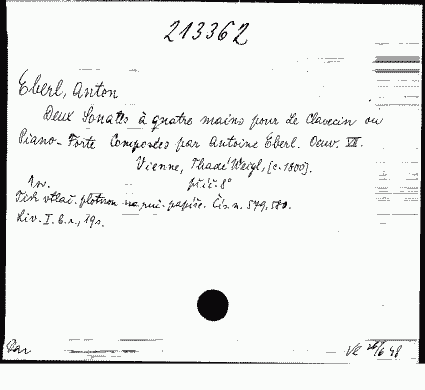 213362
Eberl, Anton
Deux Sonates à quatre mains pour Le Clavecin ou
Piano-Forte Composées par Antoine Eberl. Oeuv. VII.
Vienne, Thadé Weigl, [c. 1800].
1 sv. příč. 8°
Tisk vtlač. plotnou na ruč. papíře. Čís. n. 579, 580.
Liv. I. 6. r., 19 s.
Dar
26/6 48